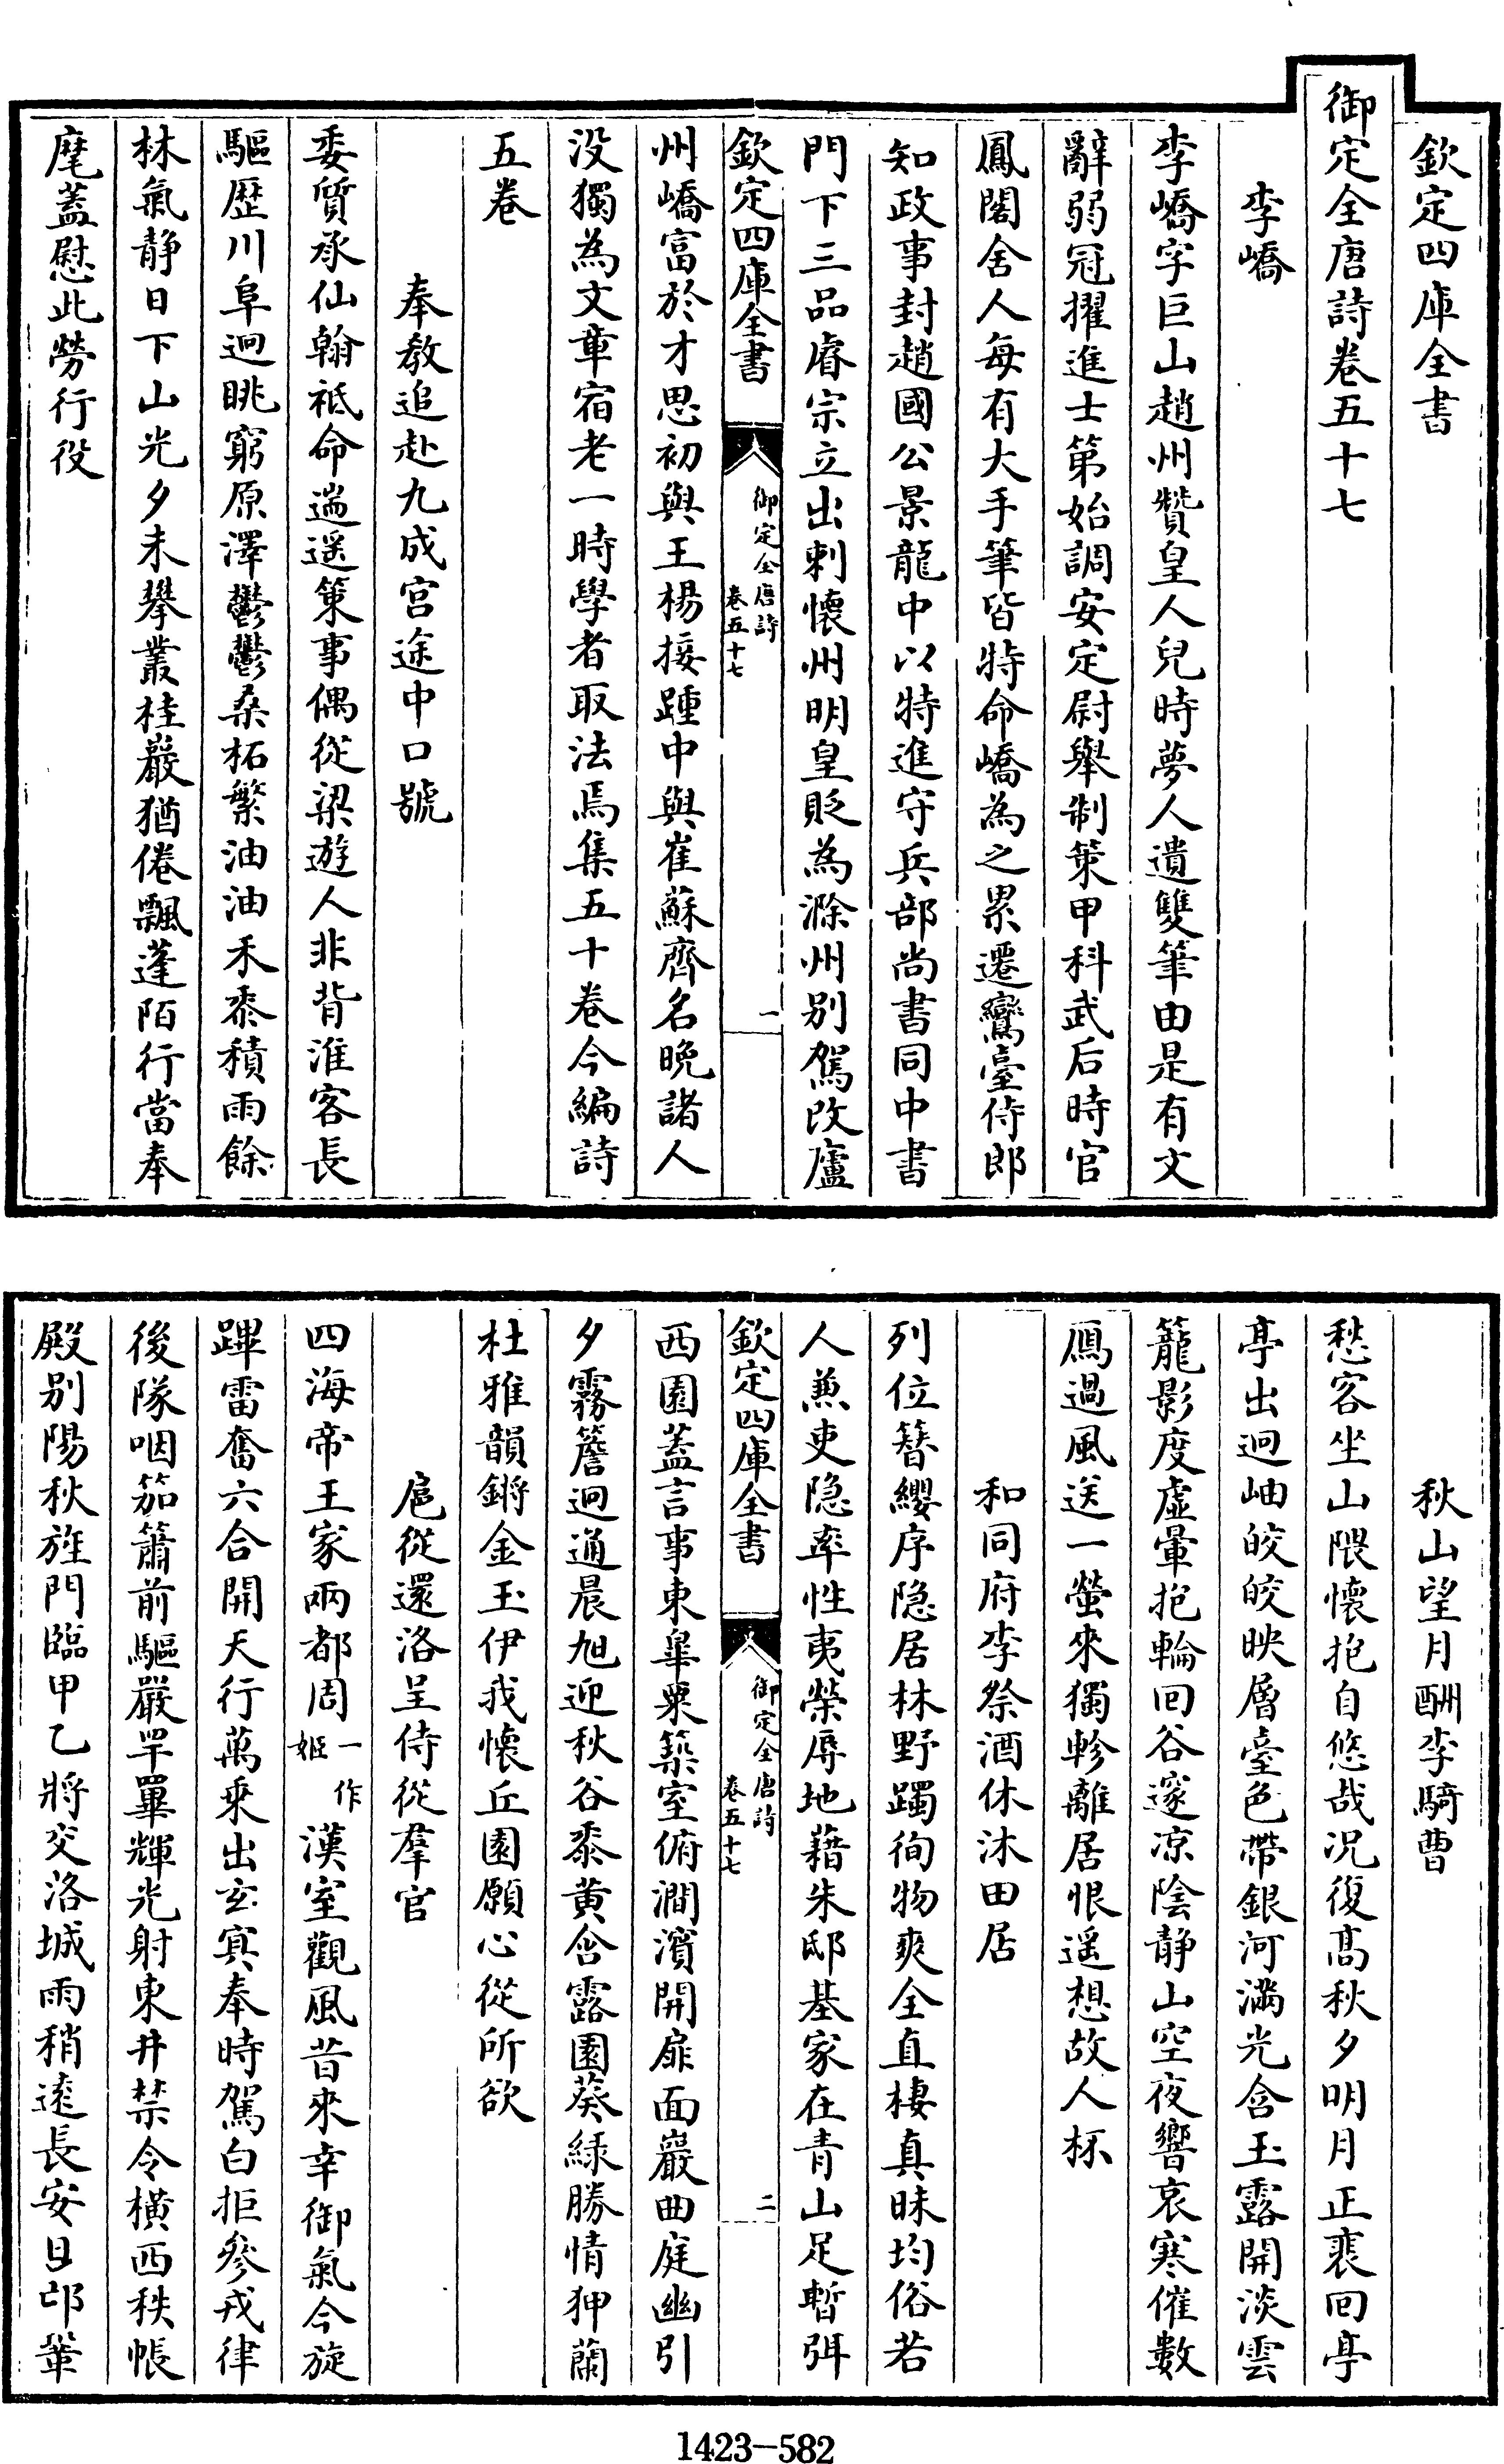 欽定四庫全書
御定全唐詩卷五十七
李嶠
李嶠字巨山趙州贊皇人兒時夢人遺雙筆由是有文
辭弱冠擢進士第始調安定尉舉制策甲科武后時官
鳳閣舍人每有大手筆皆特命嶠為之累遷鸞臺侍郎
知政事封趙國公景龍中以特進守兵部尚書同中書
門下三品睿宗立出刺懷州明皇貶為滁州别駕改廬
欽定四庫全書
御定全唐詩
卷五十七
一
州嶠富於才思初與王楊接踵中與崔蘇齊名晚諸人
没獨為文章宿老一時學者取法焉集五十卷今編詩
五卷
奉教追赴九成宫途中口號
委質承仙翰祗命遄遥策事偶從梁遊人非背淮客長
驅歷川阜迥眺窮原澤鬱鬱桑柘繁油油禾黍積雨餘
林氣静日下山光夕未攀叢桂巖猶倦飄蓬陌行當奉
麾蓋慰此勞行役
秋山望月酬李騎曹
愁客坐山隈懷抱自悠哉况復髙秋夕明月正裴回亭
亭出迥岫皎皎映層臺色帶銀河滿光含玉露開淡雲
籠影度虛暈抱輪回谷邃凉陰静山空夜響哀寒催數
鴈過風送一螢來獨軫離居恨遥想故人杯
和同府李祭酒休沐田居
列位簪纓序隐居林野躅徇物爽全直棲真昧均俗若
人兼吏隐率性夷榮辱地藉朱邸基家在青山足暫弭
欽定四庫全書
御定全唐詩
卷五十七
二
西園蓋言事東皐粟築室俯澗濱開扉面巖曲庭幽引
夕霧簷迥通晨旭迎秋谷黍黄含露園葵緑勝情狎蘭
杜雅韻鏘金玉伊我懷丘園願心從所欲
扈從還洛呈侍從羣官
四海帝王家兩都周一作姬漢室觀風昔來幸御氣今旋
蹕雷奮六合開天行萬乘出玄冥奉時駕白拒參戎律
後隊咽笳簫前驅嚴罕罼輝光射東井禁令橫西秩帳
殿别陽秋旌門臨甲乙將交洛城雨稍遠長安日邙鞏
1423—582